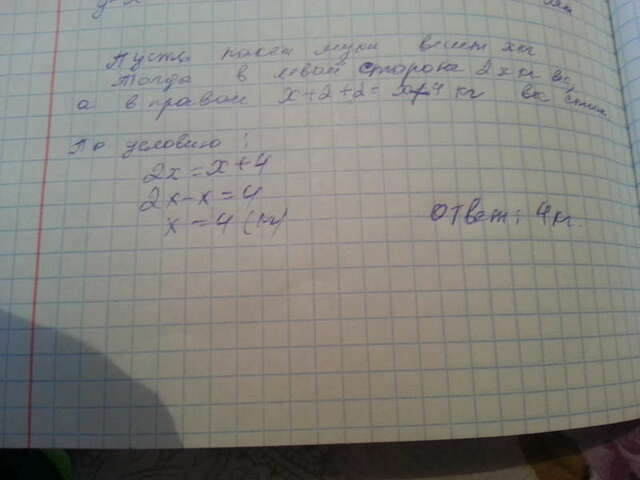 Пусть пакет муки весит x кг
Тогда в левой стороне 2x кг
а в правой x+2+2= x+4 кг
По условию:
2x = x + 4
2x - x = 4
x = 4 (кг)
Ответ: 4 кг.